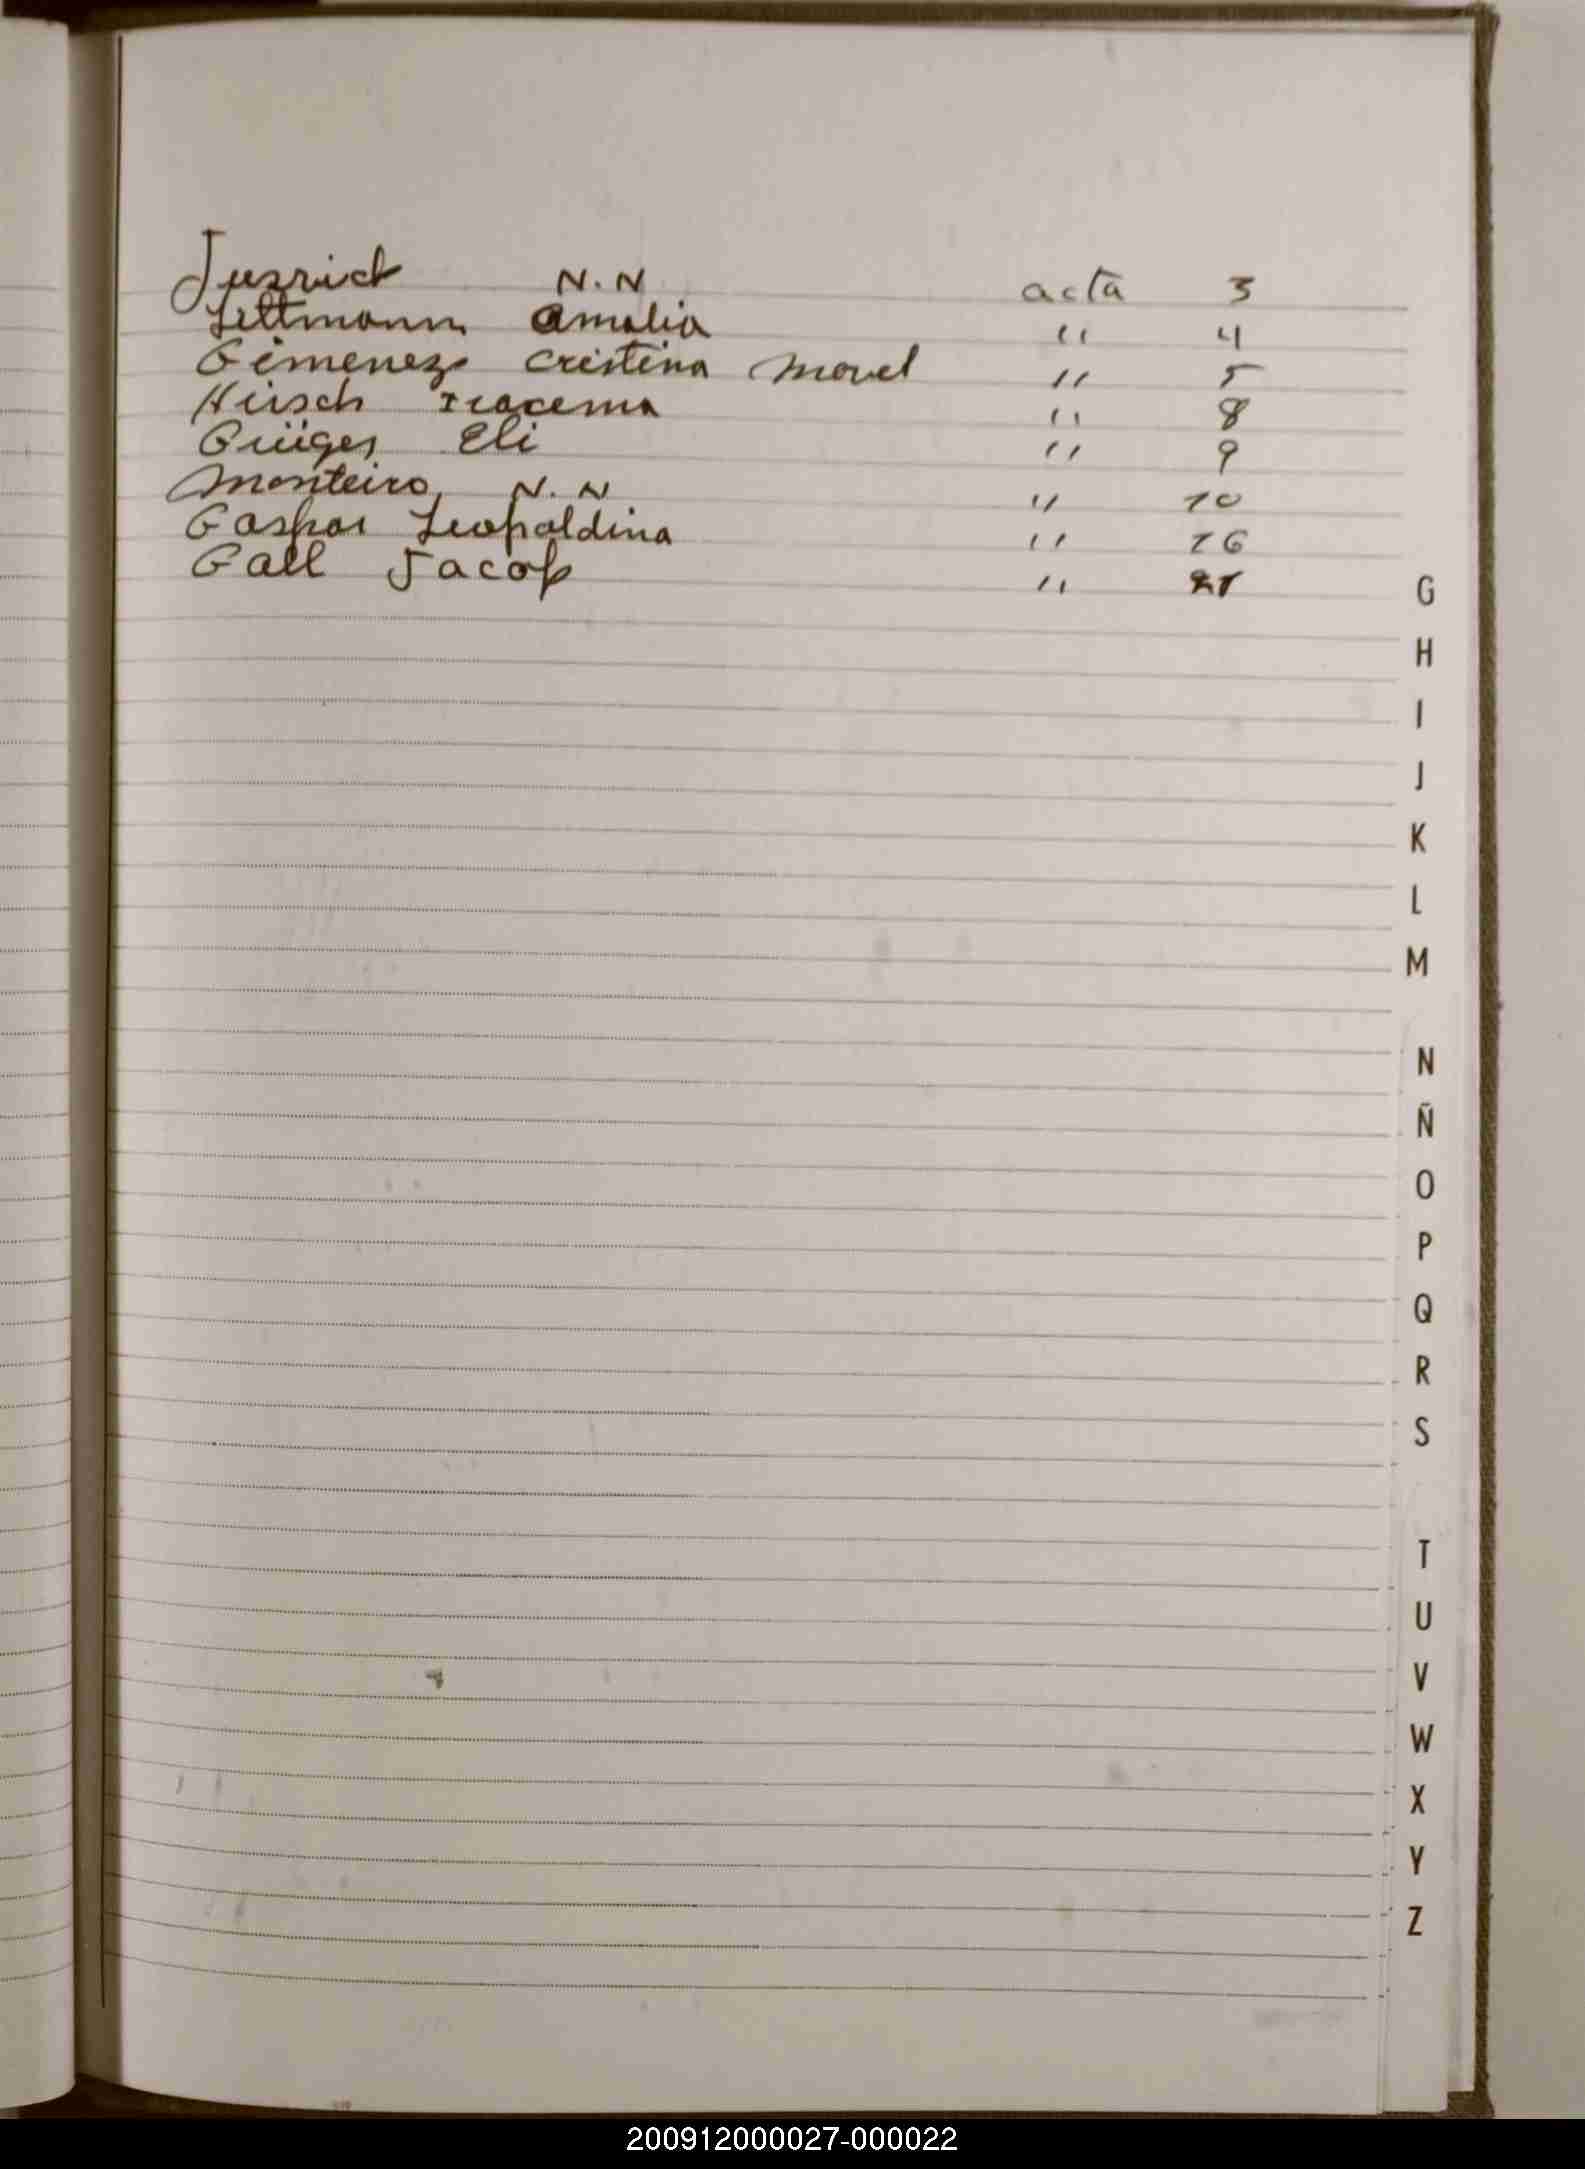 N.N acta 3
Amalia " 4
Gimenez Cristina " 5
Hirsch Iracema " 8
Eli " 9
Monteiro, N.N " 10
Gaspar Leopoldina " 16
Gall Jacob " 21
G
H
I
J
K
L
M
N
Ñ
O
P
Q
R
S
T
U
V
W
X
Y
Z
200912000027-000022